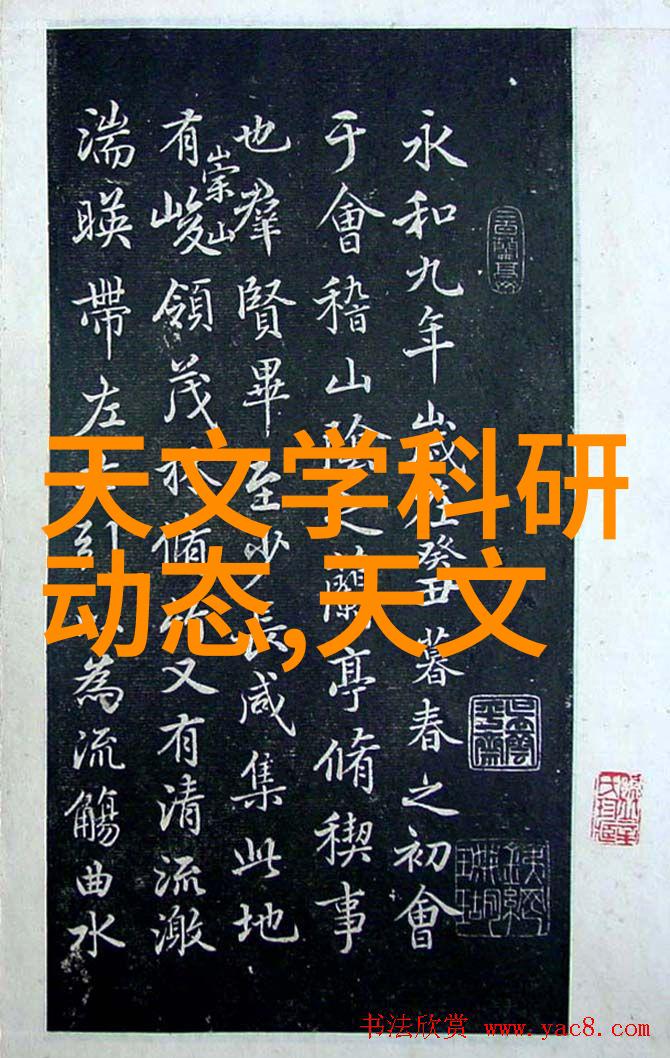 永和九年歲在癸丑暮春之初會
于會稽山陰之蘭亭脩稧事
也羣賢畢至少長咸集此地
有崇山峻領茂林脩竹又有清流激
湍暎帶左右引以為流觴曲水
天文学科研
动态,天文
书法欣赏 www.yac8.com